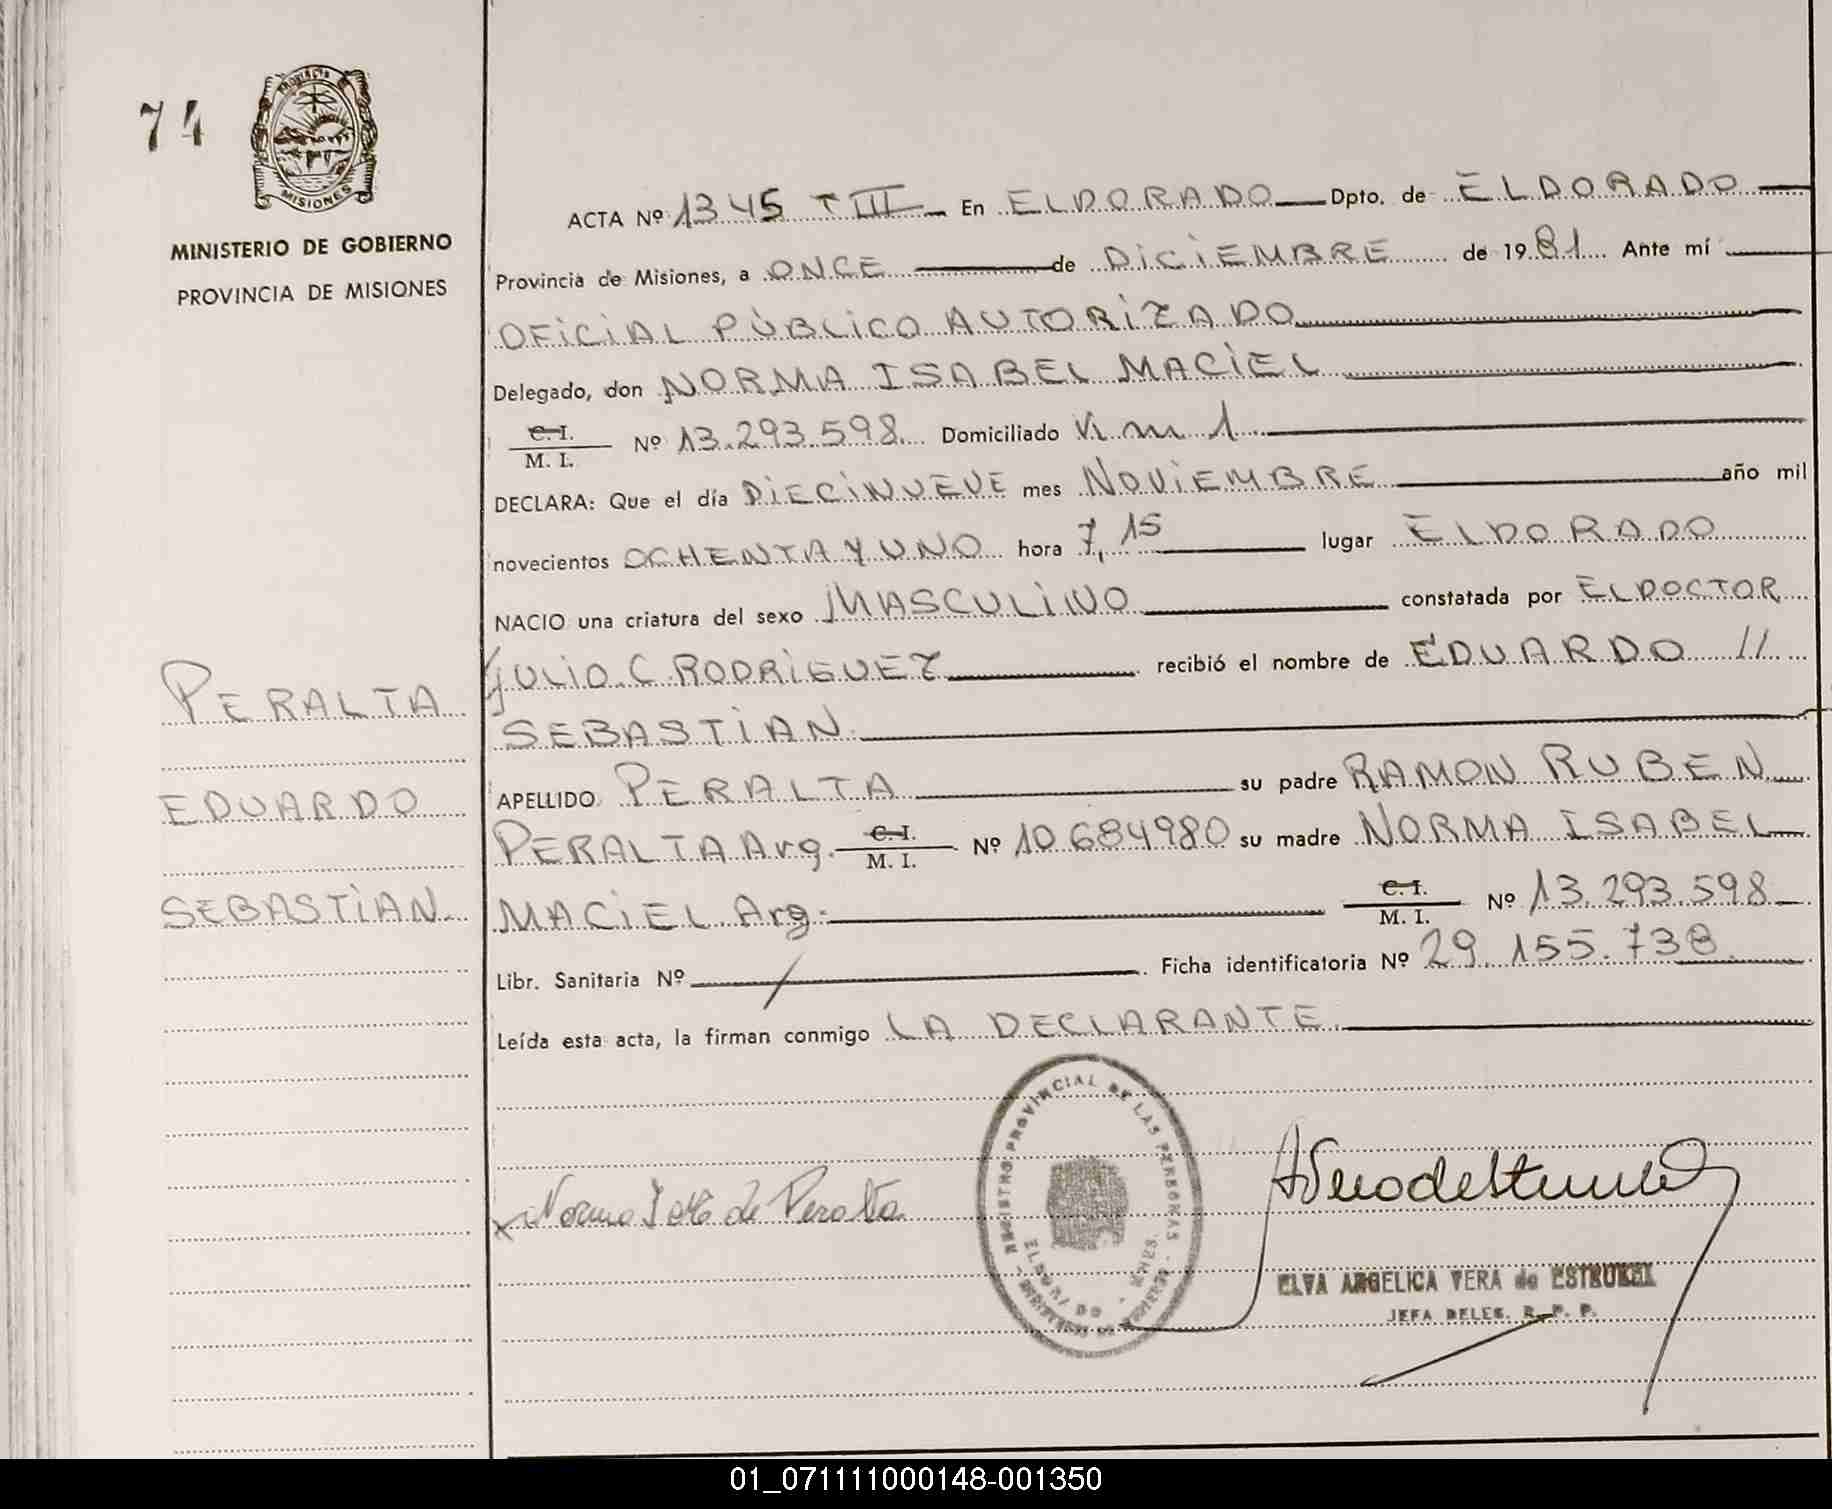 74
PROVINCIA
MISIONES
MINISTERIO DE GOBIERNO
PROVINCIA DE MISIONES
PERALTA
EDUARDO
SEBASTIAN
ACTA Nº 1345 T III En ELDORADO Dpto. de ELDORADO
Provincia de Misiones, a ONCE de DICIEMBRE de 1981 Ante mí
OFICIAL PÙBLICO AUTORIZADO
Delegado, don NORMA ISABEL MACIEL
C. I.
M. I. Nº 13.293.598 Domiciliado Km 1
DECLARA: Que el día DIECINUEVE mes NOVIEMBRE año mil
novecientos OCHENTA Y UNO hora 7,15 lugar ELDORADO
NACIO una criatura del sexo MASCULINO constatada por EL DOCTOR
JULIO C. RODRIGUEZ recibió el nombre de EDUARDO //
SEBASTIAN
APELLIDO PERALTA su padre RAMON RUBEN
PERALTA Arg. C. I. / M. I. Nº 10684980 su madre NORMA ISABEL
MACIEL Arg. C. I. / M. I. Nº 13.293.598
Libr. Sanitaria Nº / Ficha identificatoria Nº 29.155.738
Leída esta acta, la firman conmigo LA DECLARANTE
REGISTRO PROVINCIAL DE LAS PERSONAS
ELDORADO - MNES.
Norma I de Peralta
ELVA ANGELICA VERA de
JEFA DELEG. R. P. P.
01_071111000148-001350